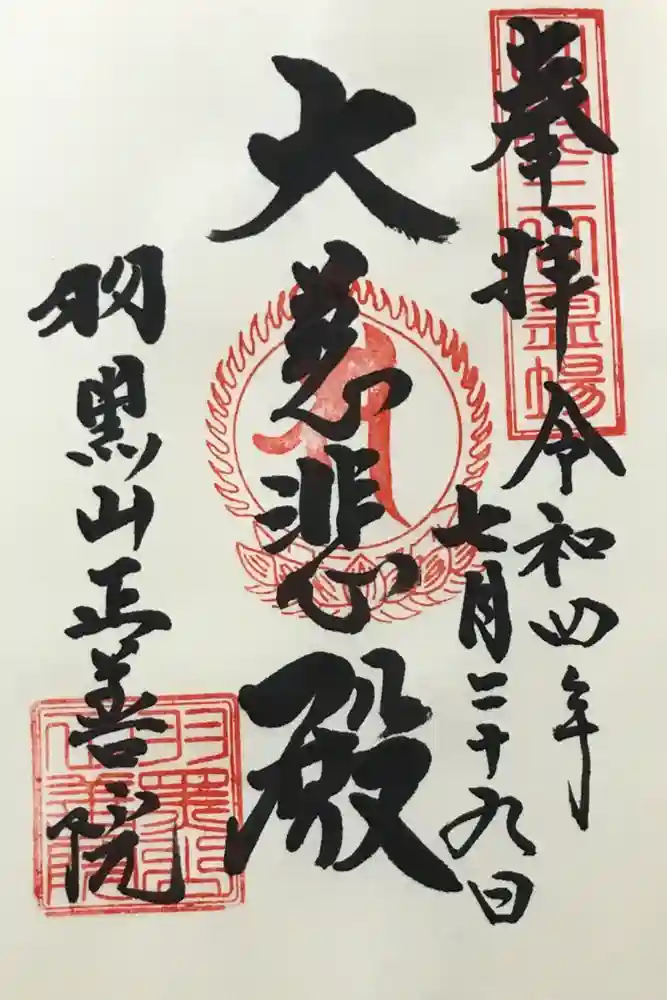 奉拝
令和四年
七月二十九日
大慈悲殿
羽黒山正善院
羽黒山
正善院